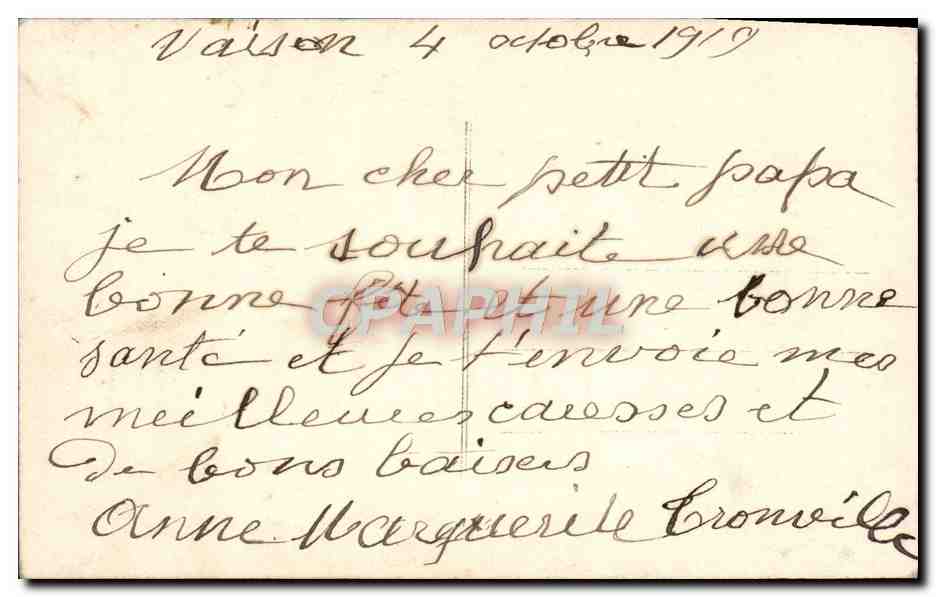 Vaison 4 octobre 1919
Mon cher petit papa
je te souhaite une
bonne fête et une bonne
santé et je t'envoie mes
meilleures caresses et
de bons baisers
Anne Marguerite Tronville
CPAPHIL